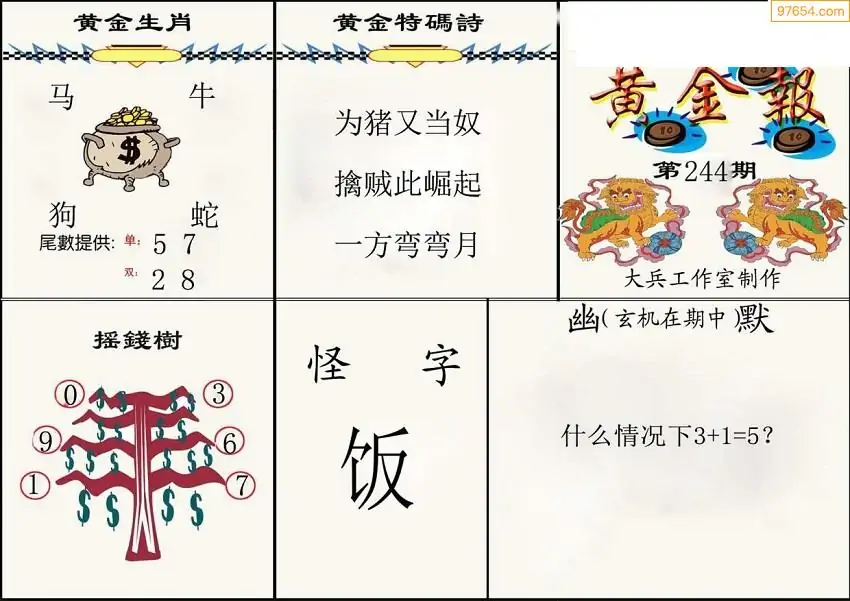 97654.com
黄金生肖
马 牛
$
狗 蛇
尾數提供: 单: 5 7
双: 2 8
黄金特碼詩
为猪又当奴
擒贼此崛起
一方弯弯月
黄金報
10
10
10
第244期
大兵工作室制作
摇錢樹
0 3
9 6
1 7
$ $ $ $
$ $ $ $
$ $ $ $
$ $ $ $
怪 字
饭
幽(玄机在期中)默
什么情况下3+1=5?